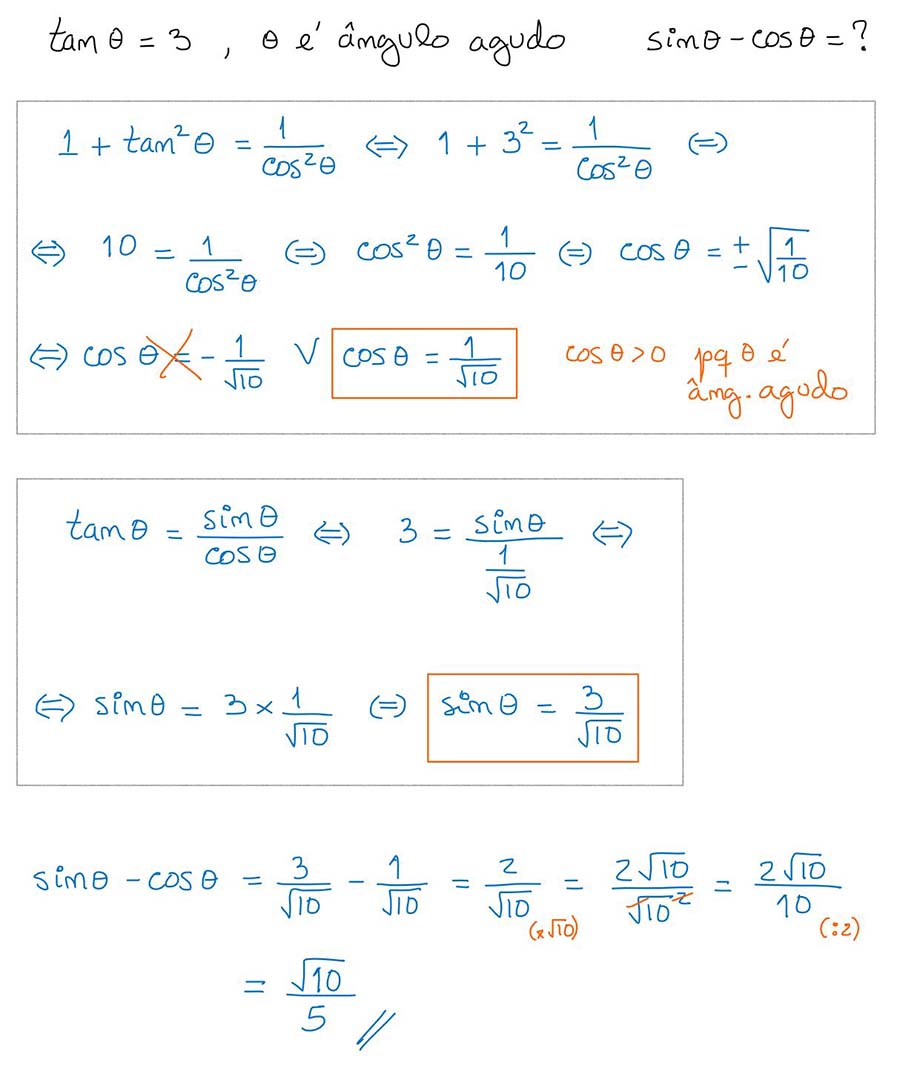 tan θ = 3 , θ é ângulo agudo sinθ - cosθ = ?
1 + tan²θ = 1/cos²θ ⇔ 1 + 3² = 1/cos²θ ⇔
⇔ 10 = 1/cos²θ ⇔ cos²θ = 1/10 ⇔ cos θ = ±√(1/10)
⇔ cos θ = - 1/√10 ∨ cosθ = 1/√10 cosθ > 0 pq θ é
âng. agudo
tanθ = sinθ/cosθ ⇔ 3 = sinθ/(1/√10) ⇔
⇔ sinθ = 3 × 1/√10 ⇔ sinθ = 3/√10
sinθ - cosθ = 3/√10 - 1/√10 = 2/√10 (×√10) = 2√10/√10² = 2√10/10 (:2)
= √10/5 //